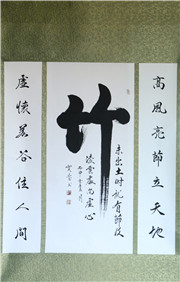 高風亮節立天地
竹
未出土时就有節及
凌雲處尚虛心
虛懷若谷住人間